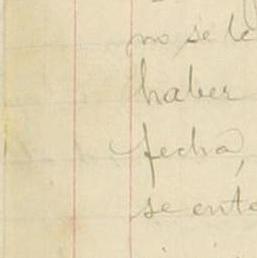 no se le
haber
fecha,
se ente